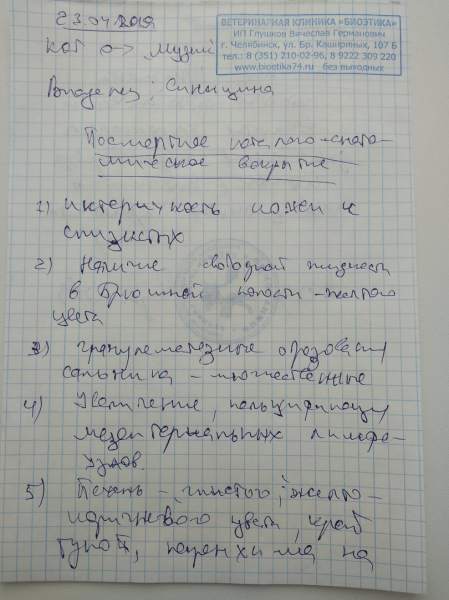 23.04.2019
ВЕТЕРИНАРНАЯ КЛИНИКА «БИОЭТИКА»
ИП Глушков Вячеслав Германович
г. Челябинск, ул. Бр. Кашириных, 107 Б
т. 8 (351) 210-02-96, 8 9222 309 220
www.bioetika74.ru без выходных
Кот
Владелец: Синицина
Посмертное патолого-анато-
мическое вскрытие
1) иктеричность кожи и
слизистых
2) Наличие свободной жидкости
в брюшной полости - желтого
цвета
3) гранулематозные образования
сальника - множественные
4) Увеличение, кальцификация
мезентериальных лимфо-
узлов.
5) Печень - глистого, желто-
коричневого цвета, край
тупой, паренхима на